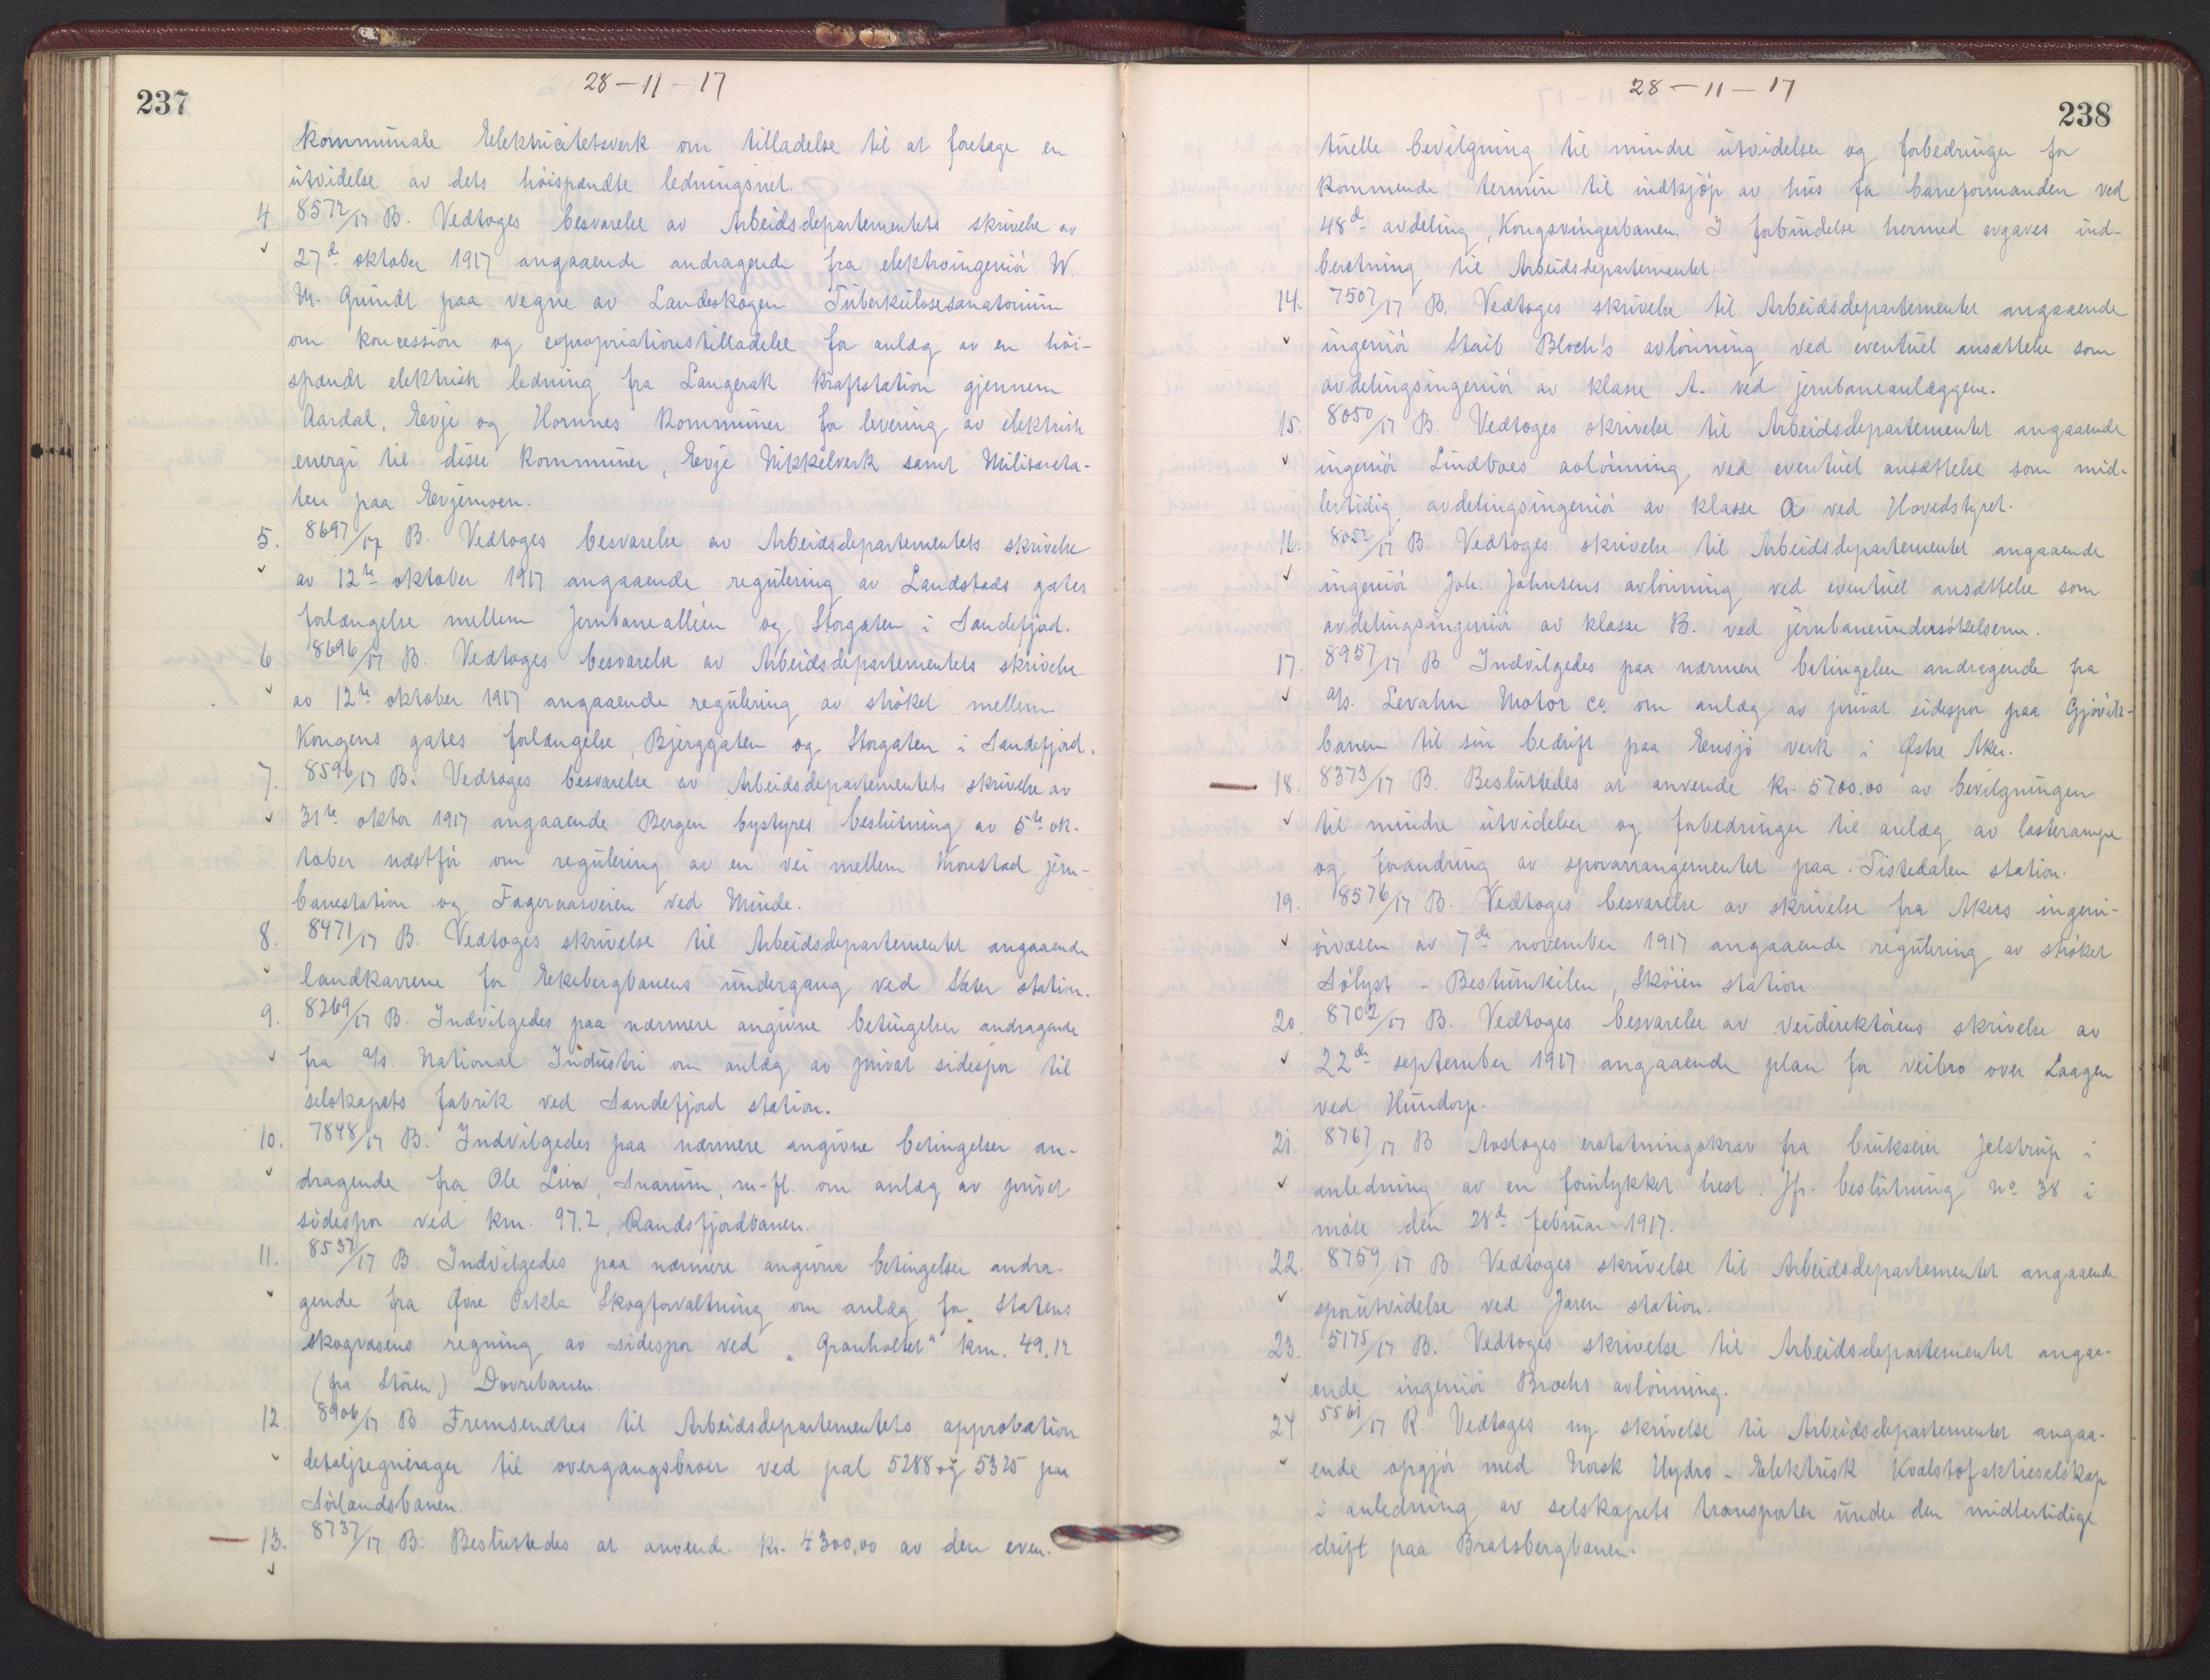 237
28-11-17
kommunale Elektricitetsverk om tilladelse til at foretage en
utvidelse av dets høispændte ledningsnet.
4. 8572/17 B. Vedtoges besvarelse av Arbeidsdepartementets skrivelse av
27de oktober 1917 angaaende andragende fra elektroingeniör W.
M. Grundt paa vegne av Landeskogen Tuberkulosesanatorium
om koncession og expropriationstilladelse for anlæg av en höi-
spændt elektrisk ledning fra Langerak kraftstation gjennem
Aardal, Evje og Hornnes kommuner for levering av elektrisk
energi til disse kommuner, Evje Nikkelverk samt Militæreta-
ten paa Evjemoen.
5. 8697/17 B. Vedtoges besvarelse av Arbeidsdepartementets skrivelse
av 12te oktober 1917 angaaende regulering av Landstads gates
forlængelse mellem Jernbanealléen og Storgaten i Sandefjord.
6 8696/17 B. Vedtoges besvarelse av Arbeidsdepartementets skrivelse
av 12te oktober 1917 angaaende regulering av ströket mellem
Kongens gates forlængelse, Bjerggaten og Storgaten i Sandefjord.
7. 8596/17 B. Vedtoges besvarelse av Arbeidsdepartementets skrivelse av
31te oktor 1917 angaaende Bergen bystyres beslutning av 5te ok-
tober næstför om regulering av en vei mellem Kronstad jern-
banestation og Fagernæsveien ved Minde.
8. 8471/17 B. Vedtoges skrivelse til Arbeidsdepartementet angaaende
landkarrene for Ekebergbanens undergang ved Sæter station.
9. 8269/17 B. Indvilgedes paa nærmere angivne betingelser andragende
fra a/s. National Industri om anlæg av privat sidespor til
selskapets fabrik ved Sandefjord station.
10. 7848/17 B. Indvilgedes paa nærmere angivne betingelser an-
dragende fra Ole Lien, Snarum, m-fl. om anlæg av privet
sidespor ved km. 97.2, Randsfjordbanen.
11. 8537/17 B. Indvilgedes paa nærmere angivne betingelser andra-
gende fra Övre Orkla Skogforvaltning om anlæg for Statens
skogvæsens regning av sidespor ved „Granholtet" km. 49,12
(fra Stören) Dovrebanen.
12 8906/17 B. Fremsendtes til Arbeidsdepartementets approbation
detaljtegninger til overgangsbroer ved pæl 5288 og 5325 paa
Sörlandsbanen.
13. 8737/17 B. Besluttedes at anvende kr. 4300,00 av den even-
238
28-11-17
tuelle bevilgning til mindre utvidelser og forbedringer for
kommende termin til indkjöp av hus for baneformanden ved
48de avdeling, Kongsvingerbanen. I forbindelse hermed avgaves ind-
beretning til Arbeidsdepartementet.
14. 7507/17 B. Vedtoges skrivelse til Arbeidsdepartementet angaaende
ingeniör Staib Bloch's avlönning ved eventuel ansættelse som
avdelingsingeniör av klasse A. ved jernbaneanlæggene.
15. 8050/17 B. Vedtoges skrivelse til Arbeidsdepartementet angaaende
ingeniör Lindboes avlönning ved eventuel ansættelse som mid-
lertidig avdelingsingeniör av klasse A ved Hovedstyret.
16. 8052/17 B. Vedtoges skrivelse til Arbeidsdepartementet angaaende
ingeniör Joh. Johnsens avlönning ved eventuel ansættelse som
avdelingsingeniör av klasse B. ved jernbaneundersökelserne.
17. 8957/17 B Indvilgedes paa nærmere betingelser andragende fra
a/s. Levahn Motor Co om anlæg av privat sidespor paa Gjövik-
banen til sin bedrift paa Ensjö verk i Østre Aker.
18. 8373/17 B. Besluttedes at anvende kr. 5700,00 av bevilgningen
til mindre utvidelser og forbedringer til anlæg av lasterampe
og forandring av sporarrangementet paa Tistedalen station.
19. 8576/17 B. Vedtoges besvarelse av skrivelse fra Akers ingeni-
örvæsen av 7de november 1917 angaaende regulering av ströket
Sölyst - Bestumkilen, Sköien station.
20. 8702/17 B. Vedtoges besvarelse av veidirektörens skrivelse av
22de september 1917 angaaende plan for veibro over Laagen
ved Hundorp.
21. 8767/17 B Avsloges erstatningskrav fra brukseier Jelstrup i
anledning av en forulykket hest. Jfr. beslutning no 38 i
möte den 28de februar 1917.
22. 8759/17 B. Vedtoges skrivelse til Arbeidsdepartementet angaaende
sporutvidelse ved Jaren station.
23. 5175/17 B. Vedtoges skrivelse til Arbeidsdepartementet angaa-
ende ingeniör Brochs avlönning.
24 5561/17 R. Vedtoges ny skrivelse til Arbeidsdepartementet angaa-
ende opgjör med Norsk Hydro-Elektrisk Kvælstofaktieselskap
i anledning av selskapets transporter under den midlertidige
drift paa Bratsbergbanen.